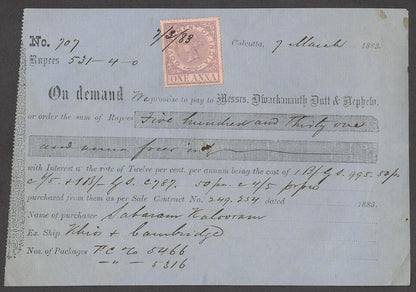 No. 707
7/3/83
Calcutta, 7 March 1883.
Rupees 531-4-0
ONE ANNA
On demand We promise to pay to Messrs. Dwarkanauth Dutt & Nephew,
or order the sum of Rupees Five hundred and thirty one
and anna four only
with Interest at the rate of Twelve per cent. per annum being the cost of 1 B/ G.S. 995. 50 p
& 1 B/ G.S. 2787. 50 pc 4/5
purchased from them as per Sale Contract No. 249.254 dated 1883.
Name of purchaser Sabaram Kalooram
Ex. Ship. Khios & Cambridge
Nos. of Packages P C 5466
" 5316